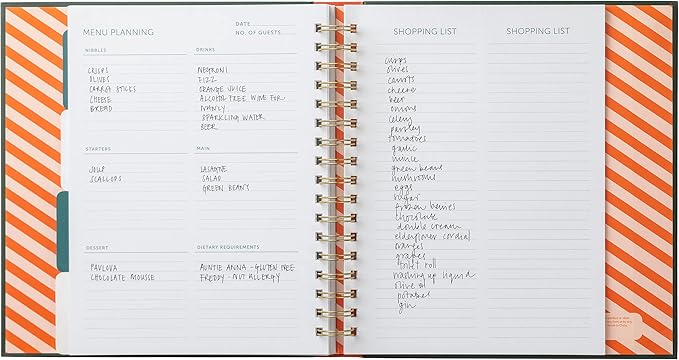 MENU PLANNING
DATE
NO. OF GUESTS
NIBBLES
CRISPS
OLIVES
CARROT STICKS
CHEESE
BREAD
DRINKS
NEGRONI
FIZZ
ORANGE JUICE
ALCOHOL FREE WINE FOR
SPARKLING WATER
BEER
STARTERS
SOUP
SCALLOPS
MAIN
LASAGNE
SALAD
GREEN BEANS
DESSERT
PAVLOVA
CHOCOLATE MOUSSE
DIETARY REQUIREMENTS
AUNTIE ANNA - GLUTEN FREE
FREDDY - NUT ALLERGY
SHOPPING LIST
crisps
olives
carrots
cheese
beer
onions
celery
parsley
tomatoes
garlic
mince
green beans
mushrooms
eggs
sugar
frozen berries
chocolate
double cream
elderflower cordial
oranges
grapes
toilet roll
washing up liquid
olive oil
potatoes
gin
SHOPPING LIST